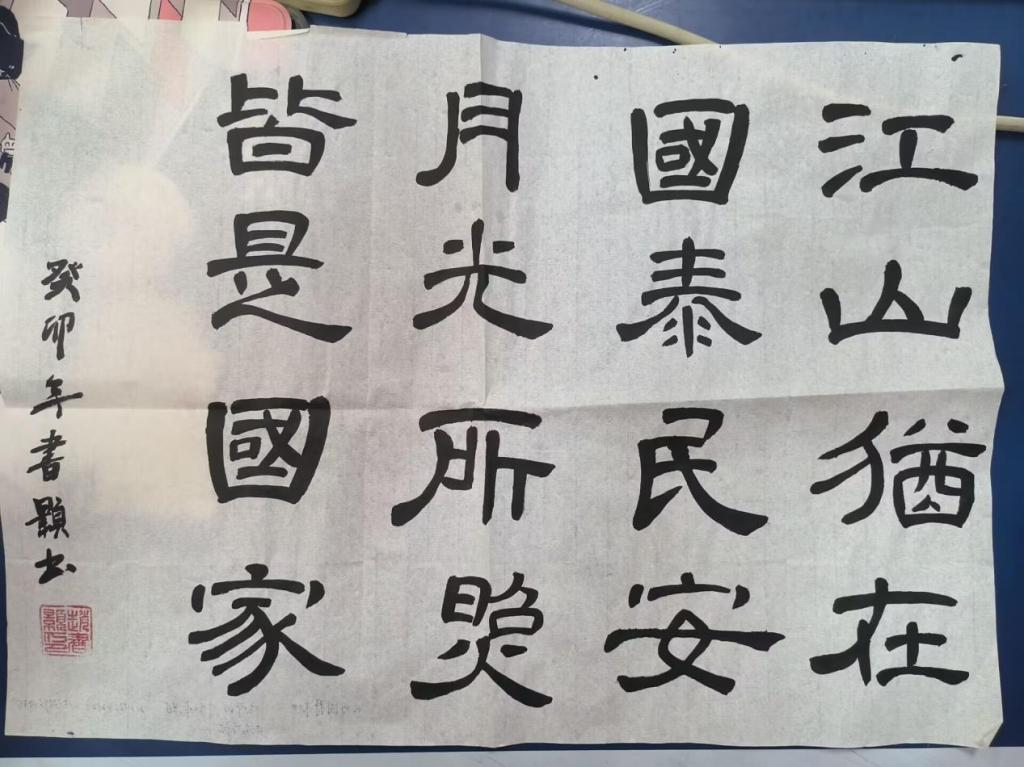 江山猶在
國泰民安
月光所照
皆是國家
癸卯年書顥书